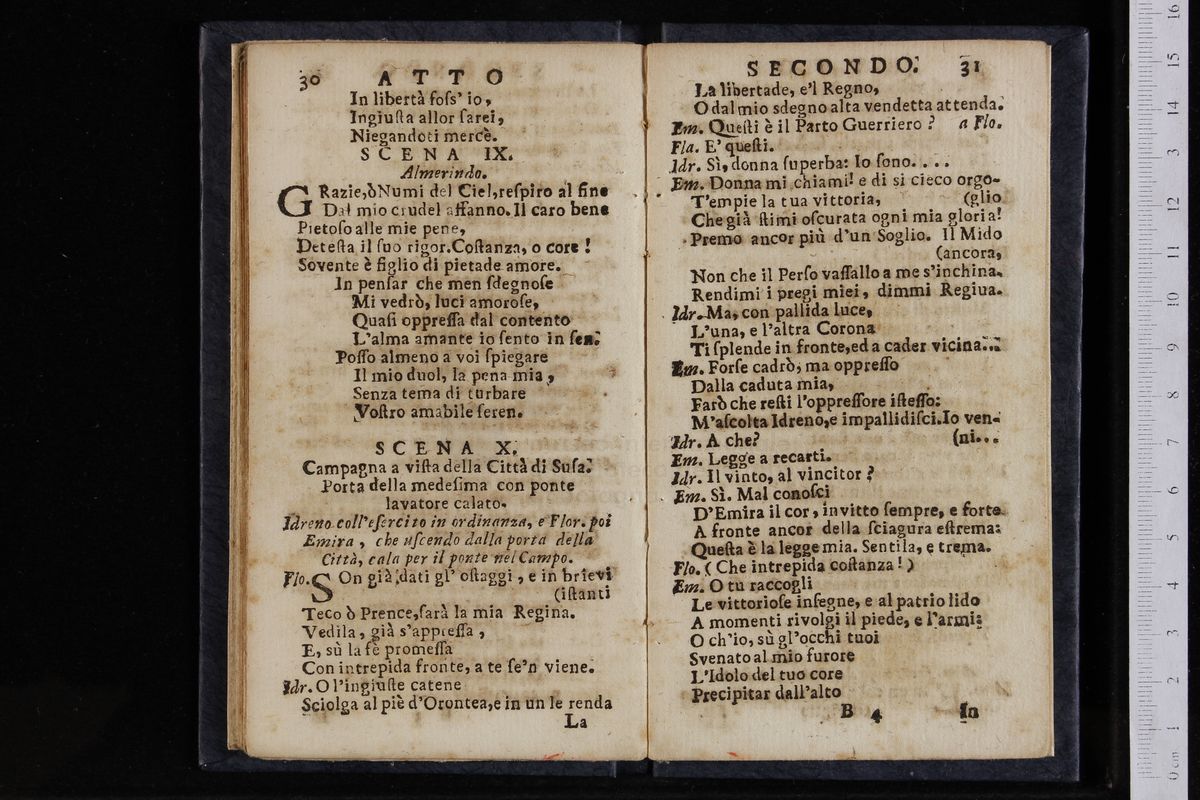 30 ATTO
In libertà foſs' io,
Ingiuſta allor ſarei,
Niegandoti mercè.
SCENA IX.
Almerindo.
GRazie,òNumi del Ciel,reſpiro al fine
Dal mio crudel affanno.Il caro bene
Pietoſo alle mie pene,
Deteſta il ſuo rigor.Coſtanza, o core!
Sovente è figlio di pietade amore.
In penſar che men ſdegnoſe
Mi vedrò, luci amoroſe,
Quaſi oppreſſa dal contento
L'alma amante io ſento in ſen.
Poſſo almeno a voi ſpiegare
Il mio duol, la pena mia,
Senza tema di turbare
Voſtro amabile ſeren.
SCENA X.
Campagna a viſta della Città di Suſa.
Porta della medeſima con ponte
lavatore calato.
Idreno coll'eſercito in ordinanza, e Flor. poi
Emira, che uſcendo dalla porta della
Città, cala per il ponte nel Campo.
Flo. SOn già dati gl' oſtaggi, e in brievi
(iſtanti
Teco ò Prence,ſarà la mia Regina.
Vedila, già s'appreſſa,
E, sù la fè promeſſa
Con intrepida fronte, a te ſe'n viene.
Idr. O l'ingiuſte catene
Sciolga al piè d'Orontea,e in un le renda
La
SECONDO. 31
La libertade, e'l Regno,
O dal mio sdegno alta vendetta attenda.
Em. Queſti è il Parto Guerriero? a Flo.
Fla. E' queſti.
Idr. Sì, donna ſuperba: Io ſono....
Em. Donna mi chiami! e di si cieco orgo-
T'empie la tua vittoria, (glio
Che già ſtimi oſcurata ogni mia gloria!
Premo ancor più d'un Soglio. Il Mido
(ancora,
Non che il Perſo vaſſallo a me s'inchina.
Rendimi i pregi miei, dimmi Regiua.
Idr. Ma, con pallida luce,
L'una, e l'altra Corona
Ti ſplende in fronte,ed a cader vicina...
Em. Forſe cadrò, ma oppreſſo
Dalla caduta mia,
Farò che reſti l'oppreſſore iſteſſo:
M'aſcolta Idreno,e impallidiſci.Io ven-
Idr. A che? (ni...
Em. Legge a recarti.
Idr. Il vinto, al vincitor?
Em. Sì. Mal conoſci
D'Emira il cor, invitto ſempre, e forte.
A fronte ancor della ſciagura eſtrema:
Queſta è la legge mia. Sentila, e trema.
Flo. (Che intrepida coſtanza!)
Em. O tu raccogli
Le vittorioſe inſegne, e al patrio lido
A momenti rivolgi il piede, e l'armi:
O ch'io, sù gl'occhi tuoi
Svenato al mio furore
L'Idolo del tuo core
Precipitar dall'alto
B 4 In
0 cm 1 2 3 4 5 6 7 8 9 10 11 12 13 14 15 16